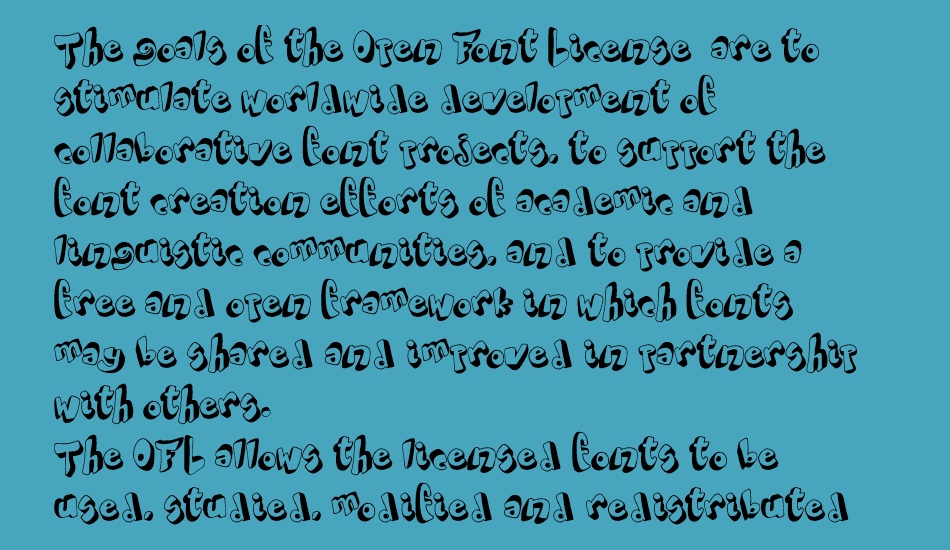 The goals of the Open Font License are to
stimulate worldwide development of
collaborative font projects, to support the
font creation efforts of academic and
linguistic communities, and to provide a
free and open framework in which fonts
may be shared and improved in partnership
with others.
The OFL allows the licensed fonts to be
used, studied, modified and redistributed